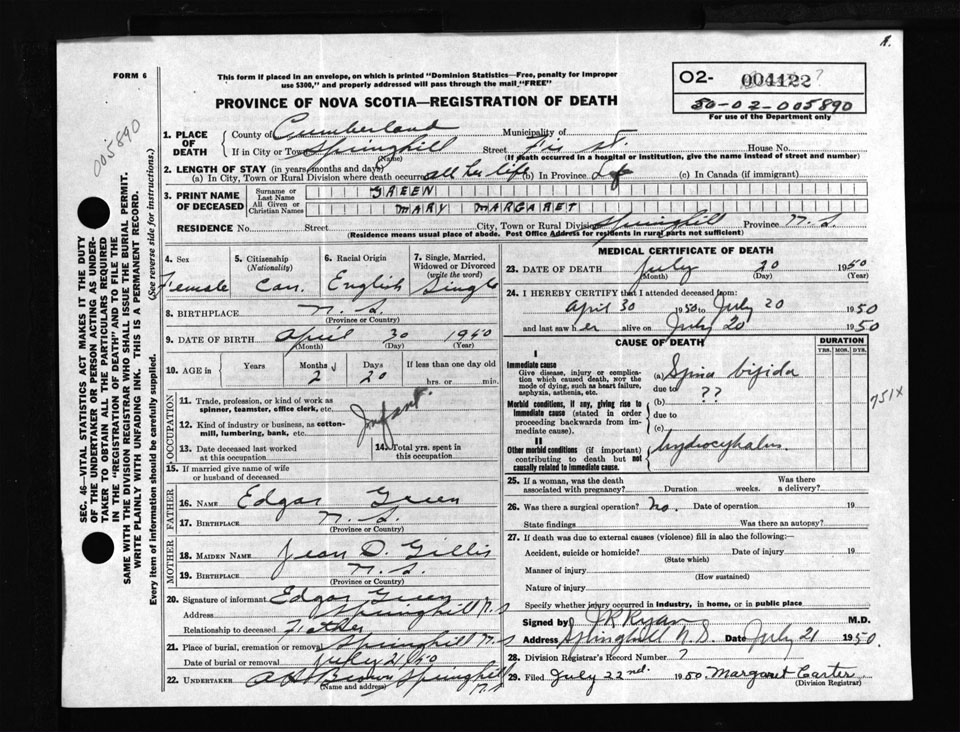 R.
FORM 6
This form if placed in an envelope, on which is printed "Dominion Statistics—Free, penalty for improper
use $300," and properly addressed will pass through the mail "FREE"
PROVINCE OF NOVA SCOTIA—REGISTRATION OF DEATH
02- 004122 ?
50-02-005890
For use of the Department only
005890
SEC. 46—VITAL STATISTICS ACT MAKES IT THE DUTY
OF THE UNDERTAKER OR PERSON ACTING AS UNDER-
TAKER TO OBTAIN ALL THE PARTICULARS REQUIRED
IN THE "REGISTRATION OF DEATH" AND TO FILE THE
SAME WITH THE DIVISION REGISTRAR WHO SHALL ISSUE THE BURIAL PERMIT.
WRITE PLAINLY WITH UNFADING INK. THIS IS A PERMANENT RECORD.
Every item of information should be carefully supplied. (See reverse side for instructions.)
1. PLACE OF DEATH
County of Cumberland Municipality of
If in City or Town Springhill Street Fir St. House No.
(Name) (If death occurred in a hospital or institution, give the name instead of street and number)
2. LENGTH OF STAY (in years, months and days)
(a) In City, Town or Rural Division where death occurred all her life (b) In Province Life (c) In Canada (if immigrant)
3. PRINT NAME OF DECEASED
Surname or Last Name GREEN
All Given or Christian Names MARY MARGARET
RESIDENCE No. Street City, Town or Rural Division Springhill Province N.S.
(Residence means usual place of abode. Post Office Address for residents in rural parts not sufficient)
4. Sex
Female
5. Citizenship (Nationality)
Can.
6. Racial Origin
English
7. Single, Married, Widowed or Divorced (write the word)
Single
8. BIRTHPLACE N.S.
(Province or Country)
9. DATE OF BIRTH April 30 1950
(Month) (Day) (Year)
10. AGE in Years Months 2 Days 20 If less than one day old
hrs. or min.
OCCUPATION
11. Trade, profession, or kind of work as spinner, teamster, office clerk, etc. Infant.
12. Kind of industry or business, as cotton-mill, lumbering, bank, etc.
13. Date deceased last worked at this occupation
14. Total yrs. spent in this occupation
15. If married give name of wife or husband of deceased
FATHER
16. NAME Edgar Green
17. BIRTHPLACE N.S.
(Province or Country)
MOTHER
18. MAIDEN NAME Jean D. Gillis
19. BIRTHPLACE N.S.
(Province or Country)
20. Signature of informant Edgar Green
Address Springhill N.S
Relationship to deceased Father
21. Place of burial, cremation or removal Springhill N.S
Date of burial or removal July 21/50
22. UNDERTAKER Brown Springhill N.S
(Name and address)
MEDICAL CERTIFICATE OF DEATH
23. DATE OF DEATH July 20 1950
(Month) (Day) (Year)
24. I HEREBY CERTIFY that I attended deceased from:
April 30 1950 to July 20 1950
and last saw her alive on July 20 1950
CAUSE OF DEATH DURATION
YRS. MOS. DYS.
I
Immediate cause
Give disease, injury or complication which caused death, not the mode of dying, such as heart failure, asphyxia, asthenia, etc.
(a) Spina bifida
due to
Morbid conditions, if any, giving rise to immediate cause (stated in order proceeding backwards from immediate cause).
(b) ??
due to
(c)
II
Other morbid conditions (if important) contributing to death but not causally related to immediate cause.
hydrocephalus
751X
25. If a woman, was the death associated with pregnancy? Duration weeks. Was there a delivery?
26. Was there a surgical operation? No. Date of operation 19
State findings Was there an autopsy?
27. If death was due to external causes (violence) fill in also the following:
Accident, suicide or homicide? Date of injury 19
(State which)
Manner of injury
(How sustained)
Nature of injury
Specify whether injury occurred in industry, in home, or in public place
Signed by J R Ryan M.D.
Address Springhill N.S. Date July 21 1950
28. Division Registrar's Record Number ?
29. Filed July 22nd. 1950. Margaret Carter
(Division Registrar)